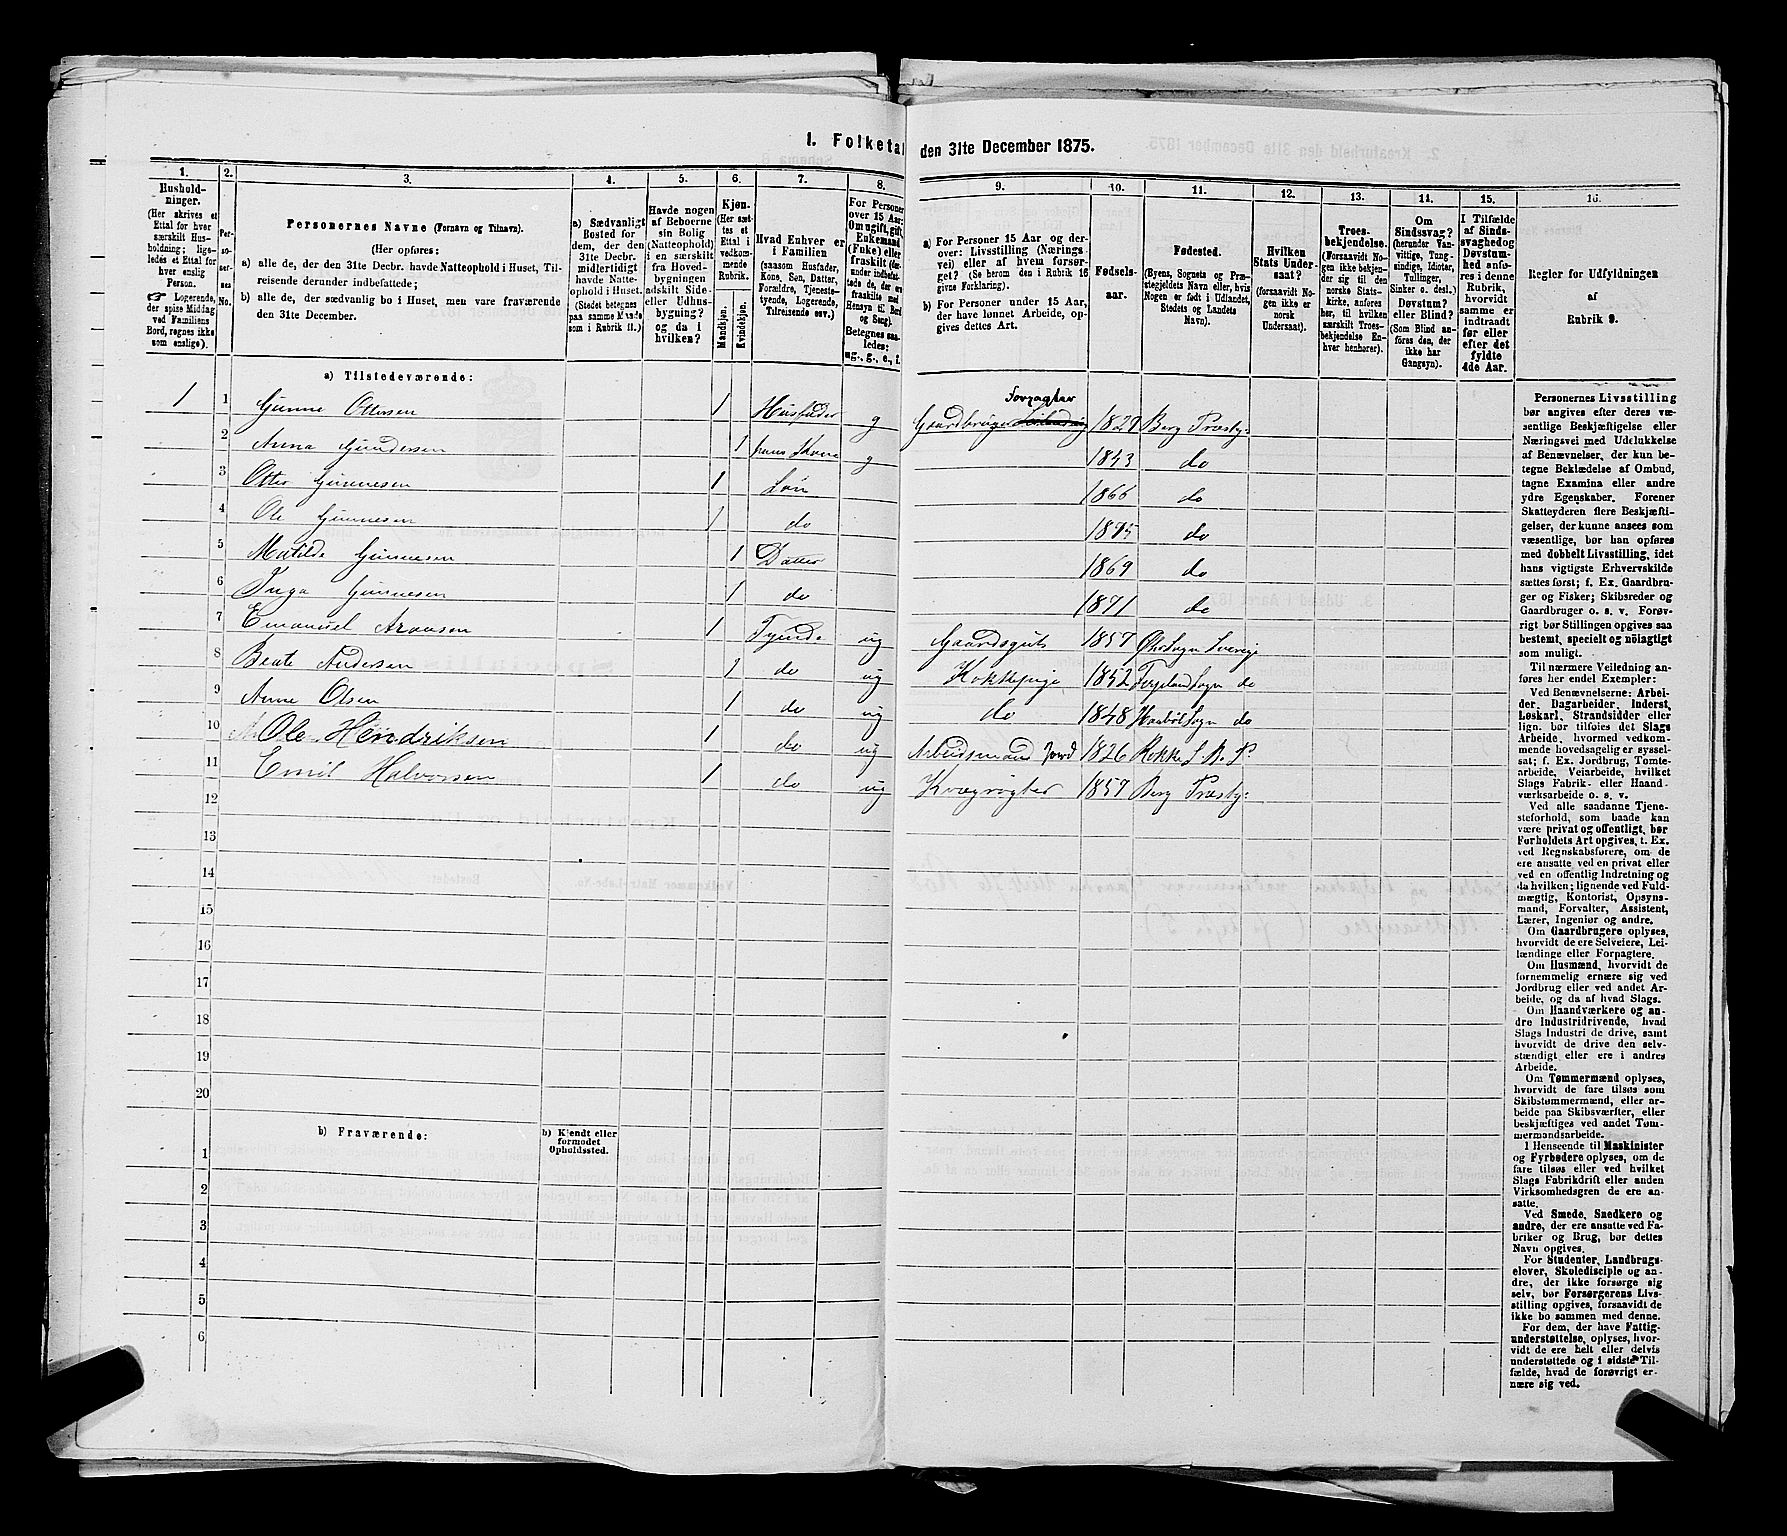 1. Folketal den 31te December 1875.
1. 2. 3. 4. 5. 6. 7. 8. 9. 10. 11. 12. 13. 14. 15. 16.
Hushold-
ninger.
(Her skrives et
Ettal for hver
særskilt Hus-
holdning; lige-
ledes et Ettal for
hver enslig
Person.
☞ Logerende,
der spise Middag
ved Familiens
Bord, regnes ikke
som enslige).
Per-
so-
ner-
nes
No.
Personernes Navne (Fornavn og Tilnavn).
(Her opføres:
a) alle de, der den 31te Decbr. havde Natteophold i Huset, Til-
reisende derunder indbefattede;
b) alle de, der sædvanlig bo i Huset, men vare fraværende
den 31te December.
a) Sædvanligt
Bosted for
dem, der den
31te Decbr.
midlertidigt
havde Natte-
ophold i Huset.
(Stedet betegnes
paa samme Maade
som i Rubrik 11.)
Havde nogen
af Beboerne
sin Bolig
(Natteophold)
i en særskilt
fra Hoved-
bygningen
adskilt Side-
eller Udhus-
bygning?
og da i
hvilken?
Kjøn.
(Her sæt-
tes et
Ettal i
vedkom-
mende
Rubrik.
Mandkjøn.
Kvindekjøn.
Hvad Enhver er
i Familien
(saasom Husfader,
Kone, Søn, Datter,
Forældre, Tjeneste-
tyende, Logerende,
Tilreisende osv.)
For Personer
over 15 Aar:
Om ugift, gift,
Enkemand
(Enke) eller
fraskilt (her-
under indbefat-
tede de, der ere
fraskilte med
Hensyn til Bord
og Seng).
Betegnes saa-
ledes:
ug., g., e., f.
a) For Personer 15 Aar og der-
over: Livsstilling (Nærings-
vei) eller af hvem forsør-
get? (Se herom den i Rubrik 16
givne Forklaring).
b) For Personer under 15 Aar,
der have lønnet Arbeide, op-
gives dettes Art.
Fødsels-
aar.
Fødested.
(Byens, Sognets og Præ-
stegjeldets Navn eller, hvis
Nogen er født i Udlandet,
Stedets og Landets
Navn).
Hvilken
Stats Under-
saat?
(forsaavidt No-
gen ikke er
norsk
Undersaat).
Troes-
bekjendelse.
(Forsaavidt No-
gen ikke bekjen-
der sig til den
norske Stats-
kirke, anføres
her, til hvilken
særskilt Troes-
bekjendelse En-
hver henhører).
Om
Sindssvag?
(herunder Van-
vittige, Tung-
sindige, Idioter,
Tullinger,
Sinker o. desl.).
Døvstum?
eller Blind?
(Som Blind an-
føres den, der
ikke har
Gangsyn).
I Tilfælde
af Sinds-
svaghed og
Døvstum-
hed anfø-
res i denne
Rubrik,
hvorvidt
samme er
indtraadt
før eller
efter det
fyldte
4de Aar.
Regler for Udfyldningen
af
Rubrik 9.
a) Tilstedeværende:
Forpagter
1 1 Gunne Ottersen 1 Husfader g Gaardbruger 1829 Berg Præstgj:
2 Anna Gundersen 1 hans Kone g 1843 do
3 Otter Gunnesen 1 Søn 1866 do
4 Ole Gunnesen 1 do 1875 do
5 Matilde Gunnesen 1 Datter 1869 do
6 Inga Gunnesen 1 do 1871 do
7 Emanuel Aronsen 1 Tyende ug Gaardsgut 1857 Sogn Sverige
8 Beate Andersen 1 do ug Kokkepige 1852 Sogn do
9 Anne Olsen 1 do ug do 1848 Sogn do
10 Ole Hendriksen 1 do ug Arbeidsmand Jord 1826 Rokke S. B. P.
11 Emil Halvorsen 1 do ug Kvægrøgter 1857 Berg Præstgj:
12
13
14
15
16
17
18
19
20
b) Fraværende:
b) Kjendt eller
formodet
Opholdssted.
1
2
3
4
5
6
Personernes Livsstilling
bør angives efter deres væ-
sentlige Beskjæftigelse eller
Næringsvei med Udelukkelse
af Benævnelser, der kun be-
tegne Beklædelse af Ombud,
tagne Examina eller andre
ydre Egenskaber. Forener
Skatteyderen flere Beskjæfti-
gelser, der kunne ansees som
væsentlige, bør han opføres
med dobbelt Livsstilling, idet
hans vigtigste Erhvervskilde
sættes først; f. Ex. Gaardbru-
ger og Fisker; Skibsreder og
Gaardbruger o. s. v. Forøv-
rigt bør Stillingen opgives saa
bestemt, specielt og nøiagtigt
som muligt.
Til nærmere Veiledning an-
føres her endel Exempler:
Ved Benævnelserne: Arbei-
der, Dagarbeider, Inderst,
Løskarl, Strandsidder eller
lign. bør tilføies det Slags
Arbeide, hvormed vedkom-
mende hovedsagelig er syssel-
sat; f. Ex. Jordbrug, Tomte-
arbeide, Veiarbeide, hvilket
Slags Fabrik- eller Haand-
værksarbeide o. s. v.
Ved alle saadanne Tjene-
steforhold, som baade kan
være privat og offentligt, bør
Forholdets Art opgives, t. Ex.
ved Regnskabsførere, om de
ere ansatte ved en privat eller
ved en offentlig Indretning og
da hvilken; lignende ved Fuld-
mægtig, Kontorist, Opsyns-
mand, Forvalter, Assistent,
Lærer, Ingeniør og andre.
Om Gaardbrugere oplyses,
hvorvidt de ere Selveiere, Lei-
lændinge eller Forpagtere.
Om Husmænd, hvorvidt de
fornemmelig ernære sig ved
Jordbrug eller ved andet Ar-
beide, og da af hvad Slags.
Om Haandværkere og an-
dre Industridrivende, hvad
Slags Industri de drive, samt
hvorvidt de drive den selv-
stændigt eller ere i andres
Arbeide.
Om Tømmermænd oplyses,
hvorvidt de fare tilsøs som
Skibstømmermænd, eller ar-
beide paa Skibsværfter, eller
beskjæftiges ved andet Tøm-
mermandsarbeide.
I Henseende til Maskinister
og Fyrbødere oplyses, om de
fare tilsøs eller ved hvilket
Slags Fabrikdrift eller anden
Virksomhedsgren de ere an-
satte.
Ved Smede, Snedkere og
andre, der ere ansatte ved Fa-
briker og Brug, bør dettes
Navn opgives.
For Studenter, Landbrugs-
elever, Skoledisciple og an-
dre, der ikke forsørge sig
selv, bør Forsørgerens Livs-
stilling opgives, forsaavidt de
ikke bo sammen med denne.
For dem, der have Fattig-
understøttelse, oplyses, hvor-
vidt de ere helt eller delvis
understøttede og i sidste Til-
fælde, hvad de forøvrigt er-
nære sig ved.